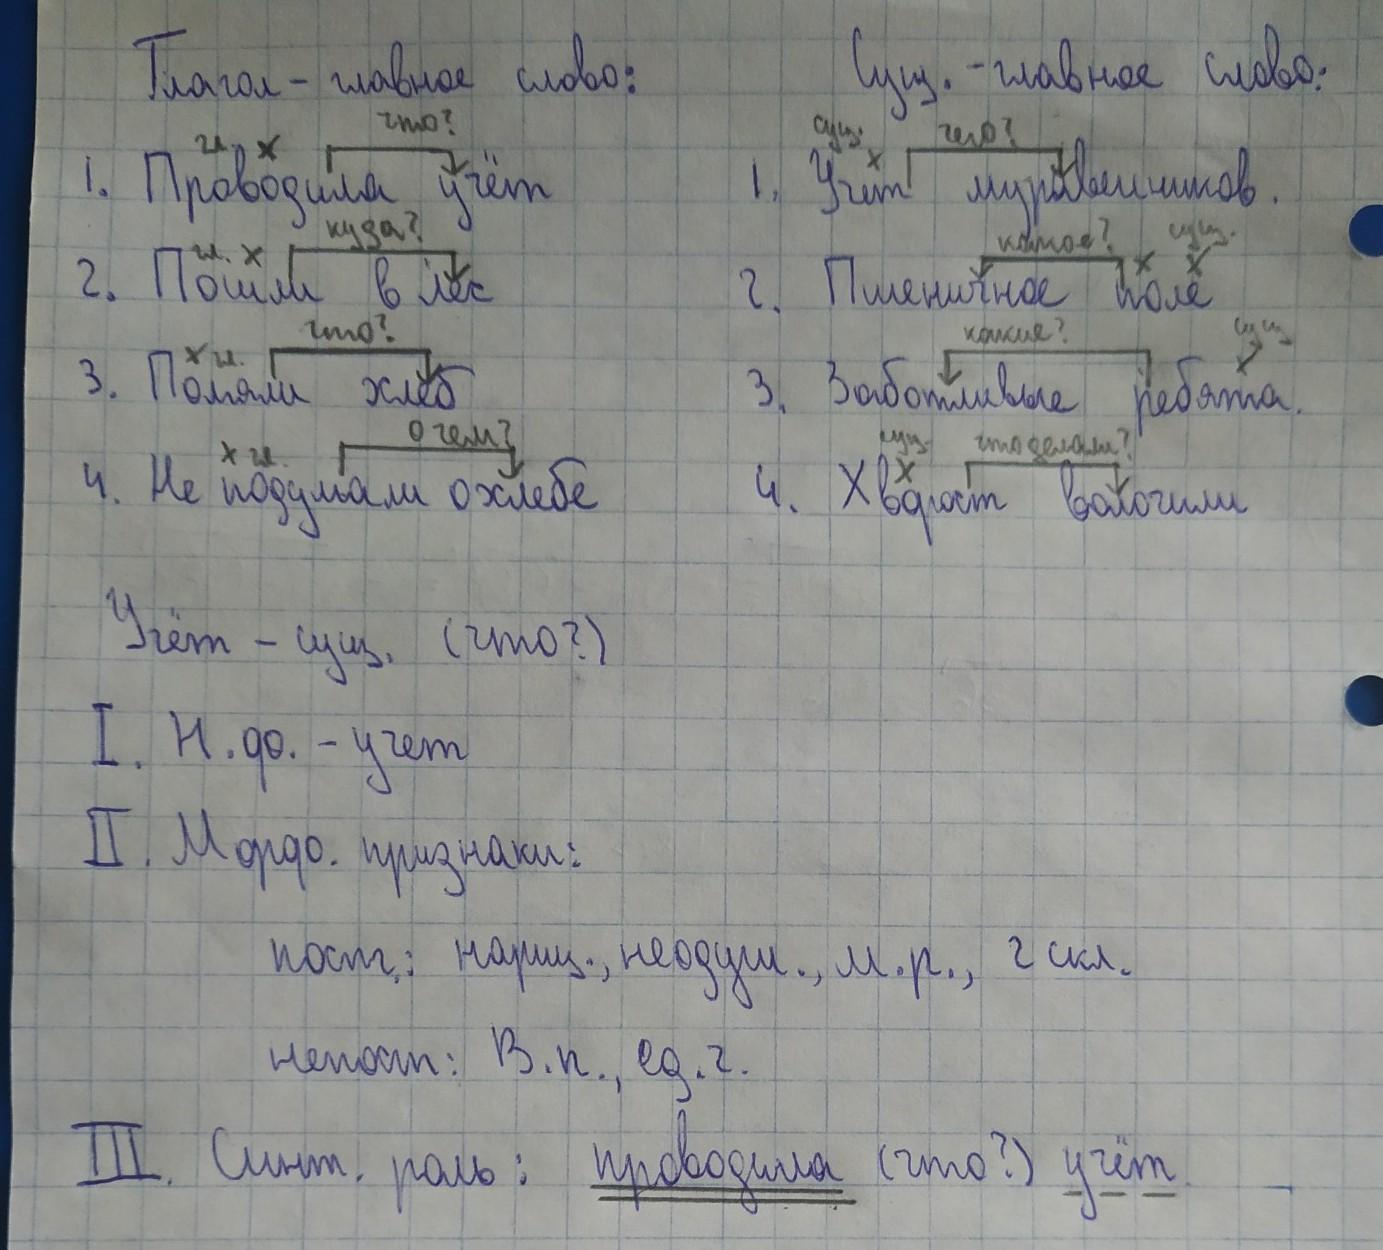 Глагол - главное слово:
что?
гл. х
1. Проводила учёт
куда?
гл. х
2. Пошли в лес
что?
х гл.
3. Помяли хлеб
о чем?
х гл.
4. Не подумали о хлебе
Сущ. - главное слово:
сущ. чего?
х
1. Учет муравейников.
какое? сущ.
х х
2. Пшеничное поле
какие? сущ
х
3. Заботливые ребята.
сущ. что делали?
х
4. Хворост волочили
Учёт - сущ. (что?)
I. Н.ф. - учет
II. Морф. признаки:
пост.: нариц., неодуш., м.р., 2 скл.
непост: В.п., ед.ч.
III. Синт. роль: проводила (что?) учёт